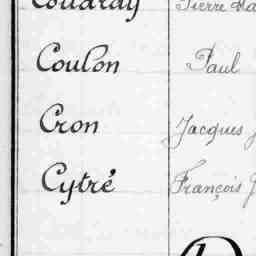 Coudray Pierre
Coulon Paul
Cron Jacques
Cytré François
D